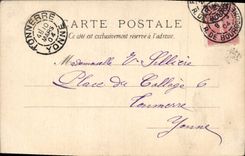 CARTE POSTALE
Ce côté est exclusivement réservé à l'adresse.
TONNERRE
YONNE
04
Mademoiselle V. Sellière
Place du Collège 6
Tonnerre
Yonne